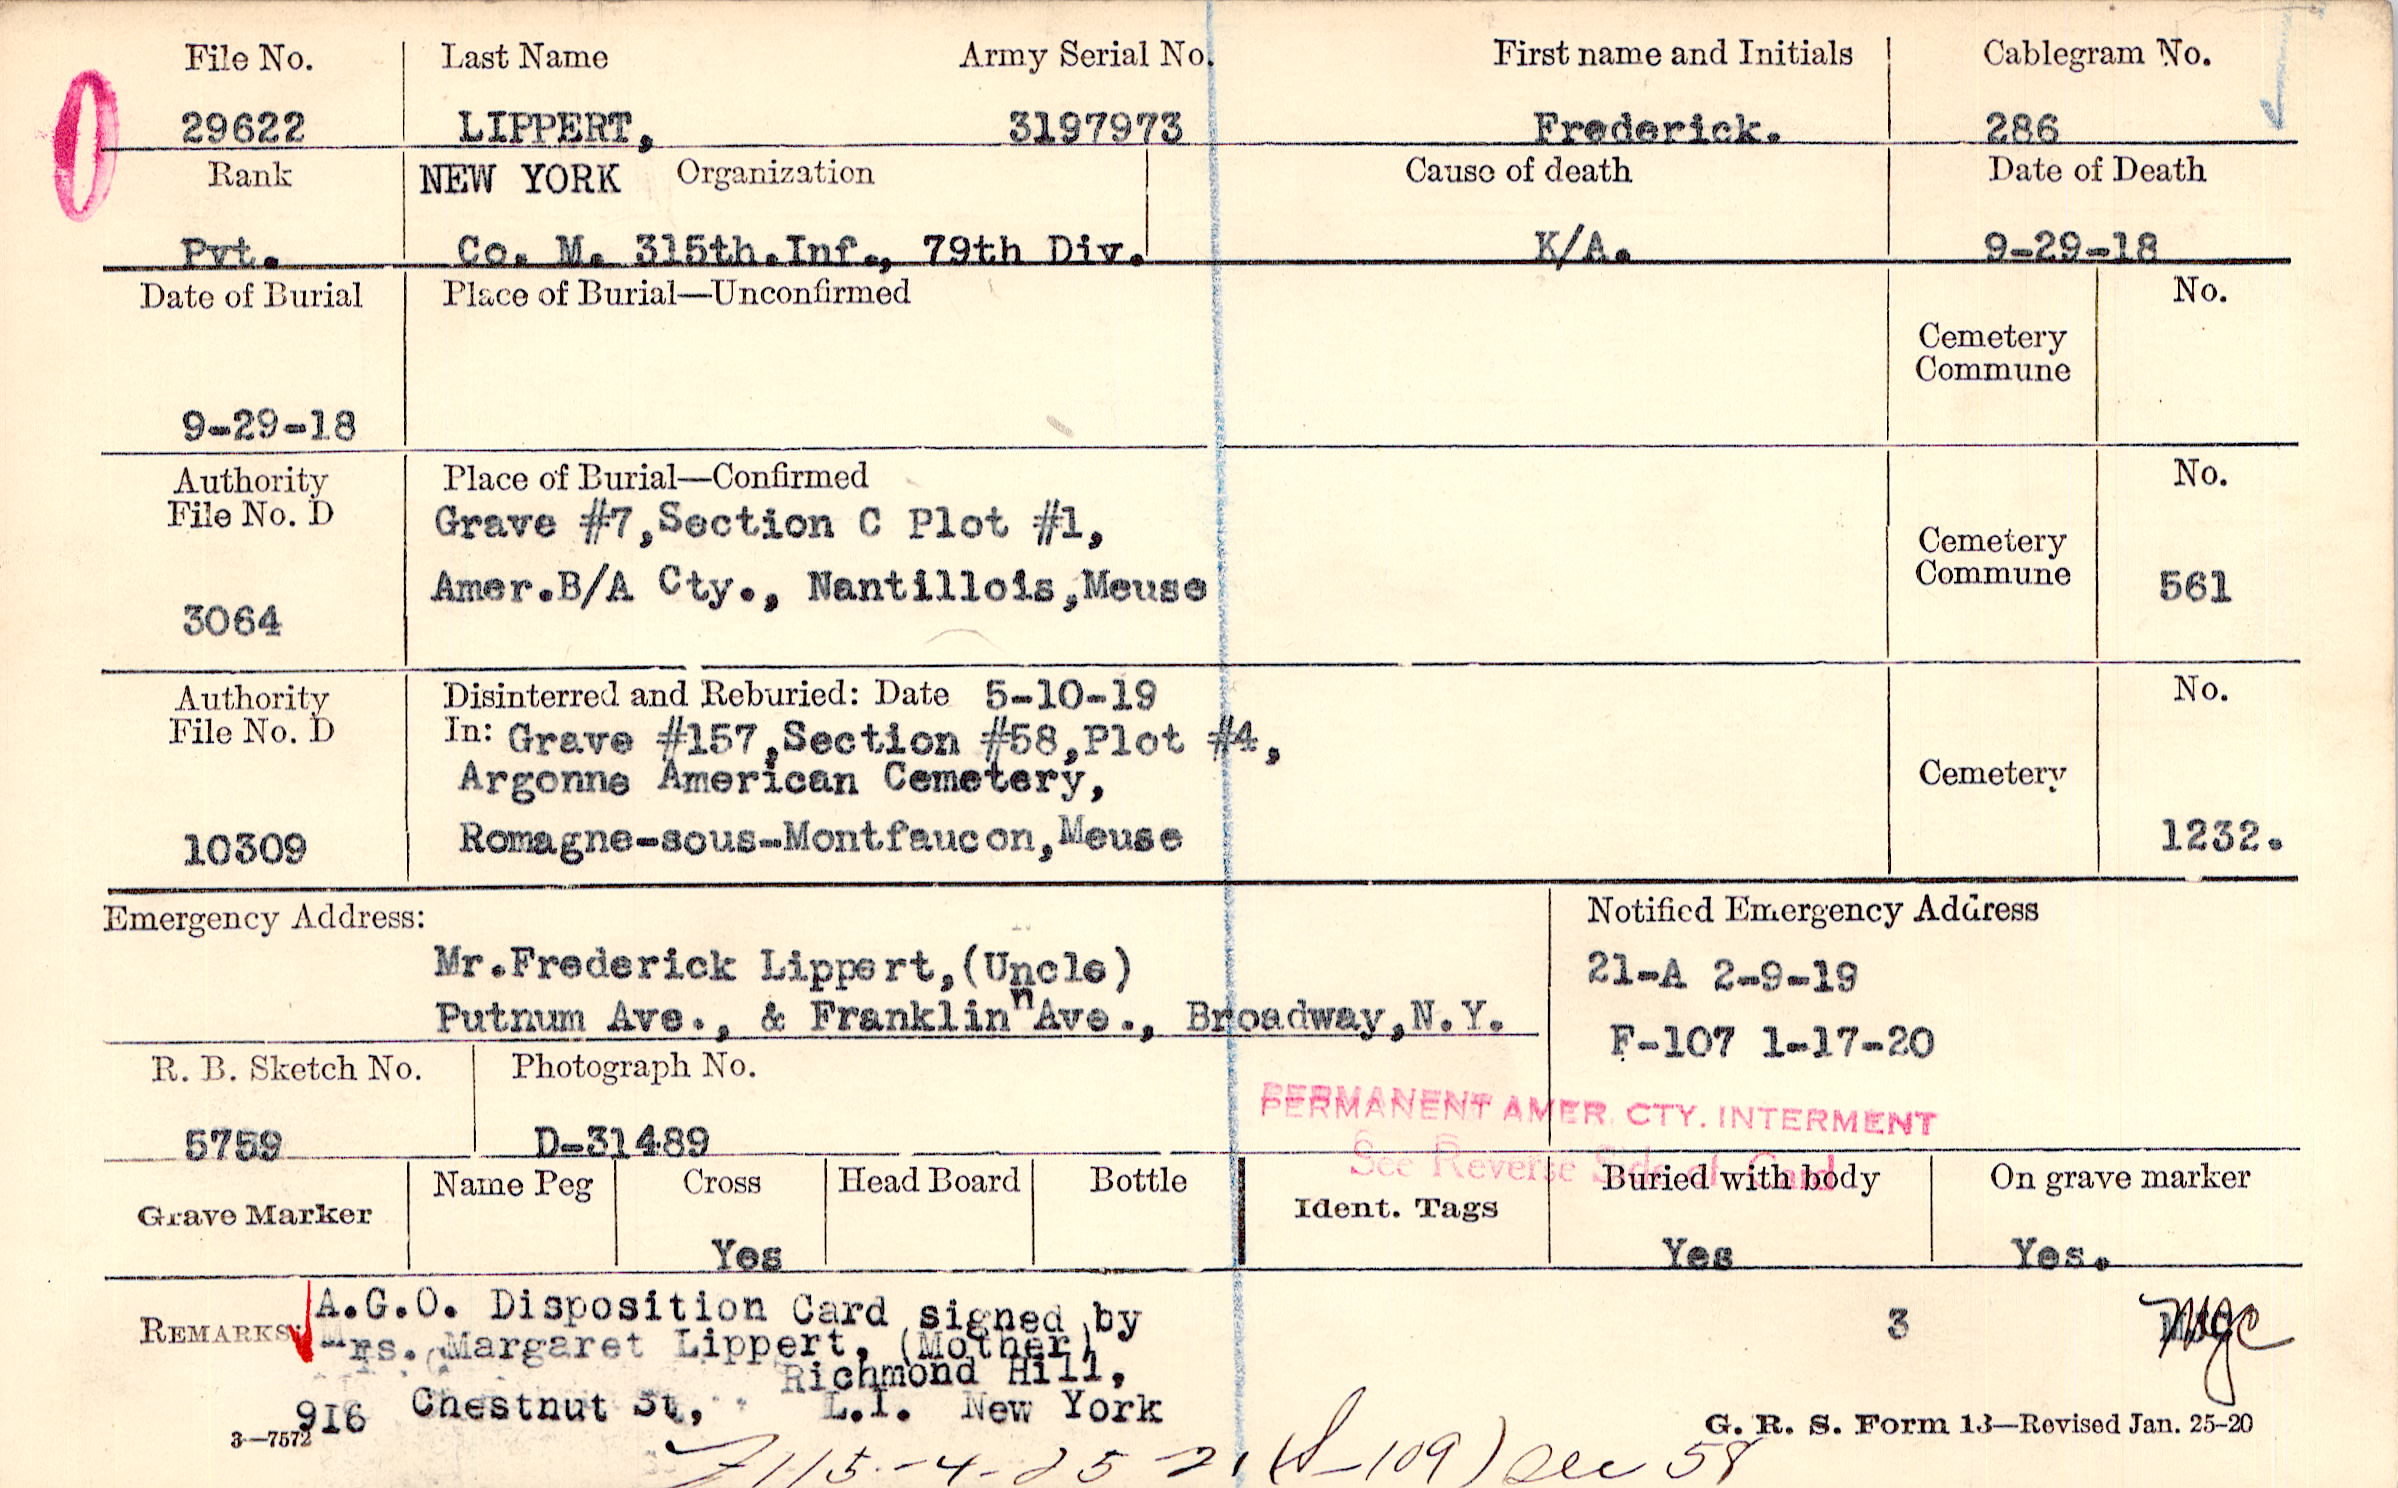 File No. Last Name Army Serial No. First name and Initials Cablegram No.
29622 LIPPERT, 3197973 Frederick. 286
Rank NEW YORK Organization Cause of death Date of Death
Pvt. Co. M. 315th.Inf., 79th Div. K/A. 9-29-18
Date of Burial Place of Burial—Unconfirmed No.
Cemetery
Commune
9-29-18
Authority Place of Burial—Confirmed No.
File No. D Grave #7,Section C Plot #1,
Cemetery
Commune
Amer.B/A Cty., Nantillois,Meuse 561
3064
Authority Disinterred and Reburied: Date 5-10-19 No.
File No. D In: Grave #157,Section #58,Plot #4,
Argonne American Cemetery, Cemetery
10309 Romagne-sous-Montfaucon,Meuse 1232.
Emergency Address: Notified Emergency Address
Mr.Frederick Lippert,(Uncle) 21-A 2-9-19
Putnum Ave., & Franklin n Ave., Broadway,N.Y. F-107 1-17-20
R. B. Sketch No. Photograph No.
PERMANENT AMER. CTY. INTERMENT
5759 D-31489
See Reverse Side of Card
Grave Marker Name Peg Cross Head Board Bottle Ident. Tags Buried with body On grave marker
Yes Yes Yes.
REMARKS: A.G.O. Disposition Card signed by 3
Mrs. Margaret Lippert, (Mother)
Richmond Hill,
916 Chestnut St, L.I. New York
3—7572 G. R. S. Form 13—Revised Jan. 25-20
5-4-25-21 (S-109) Sec 58